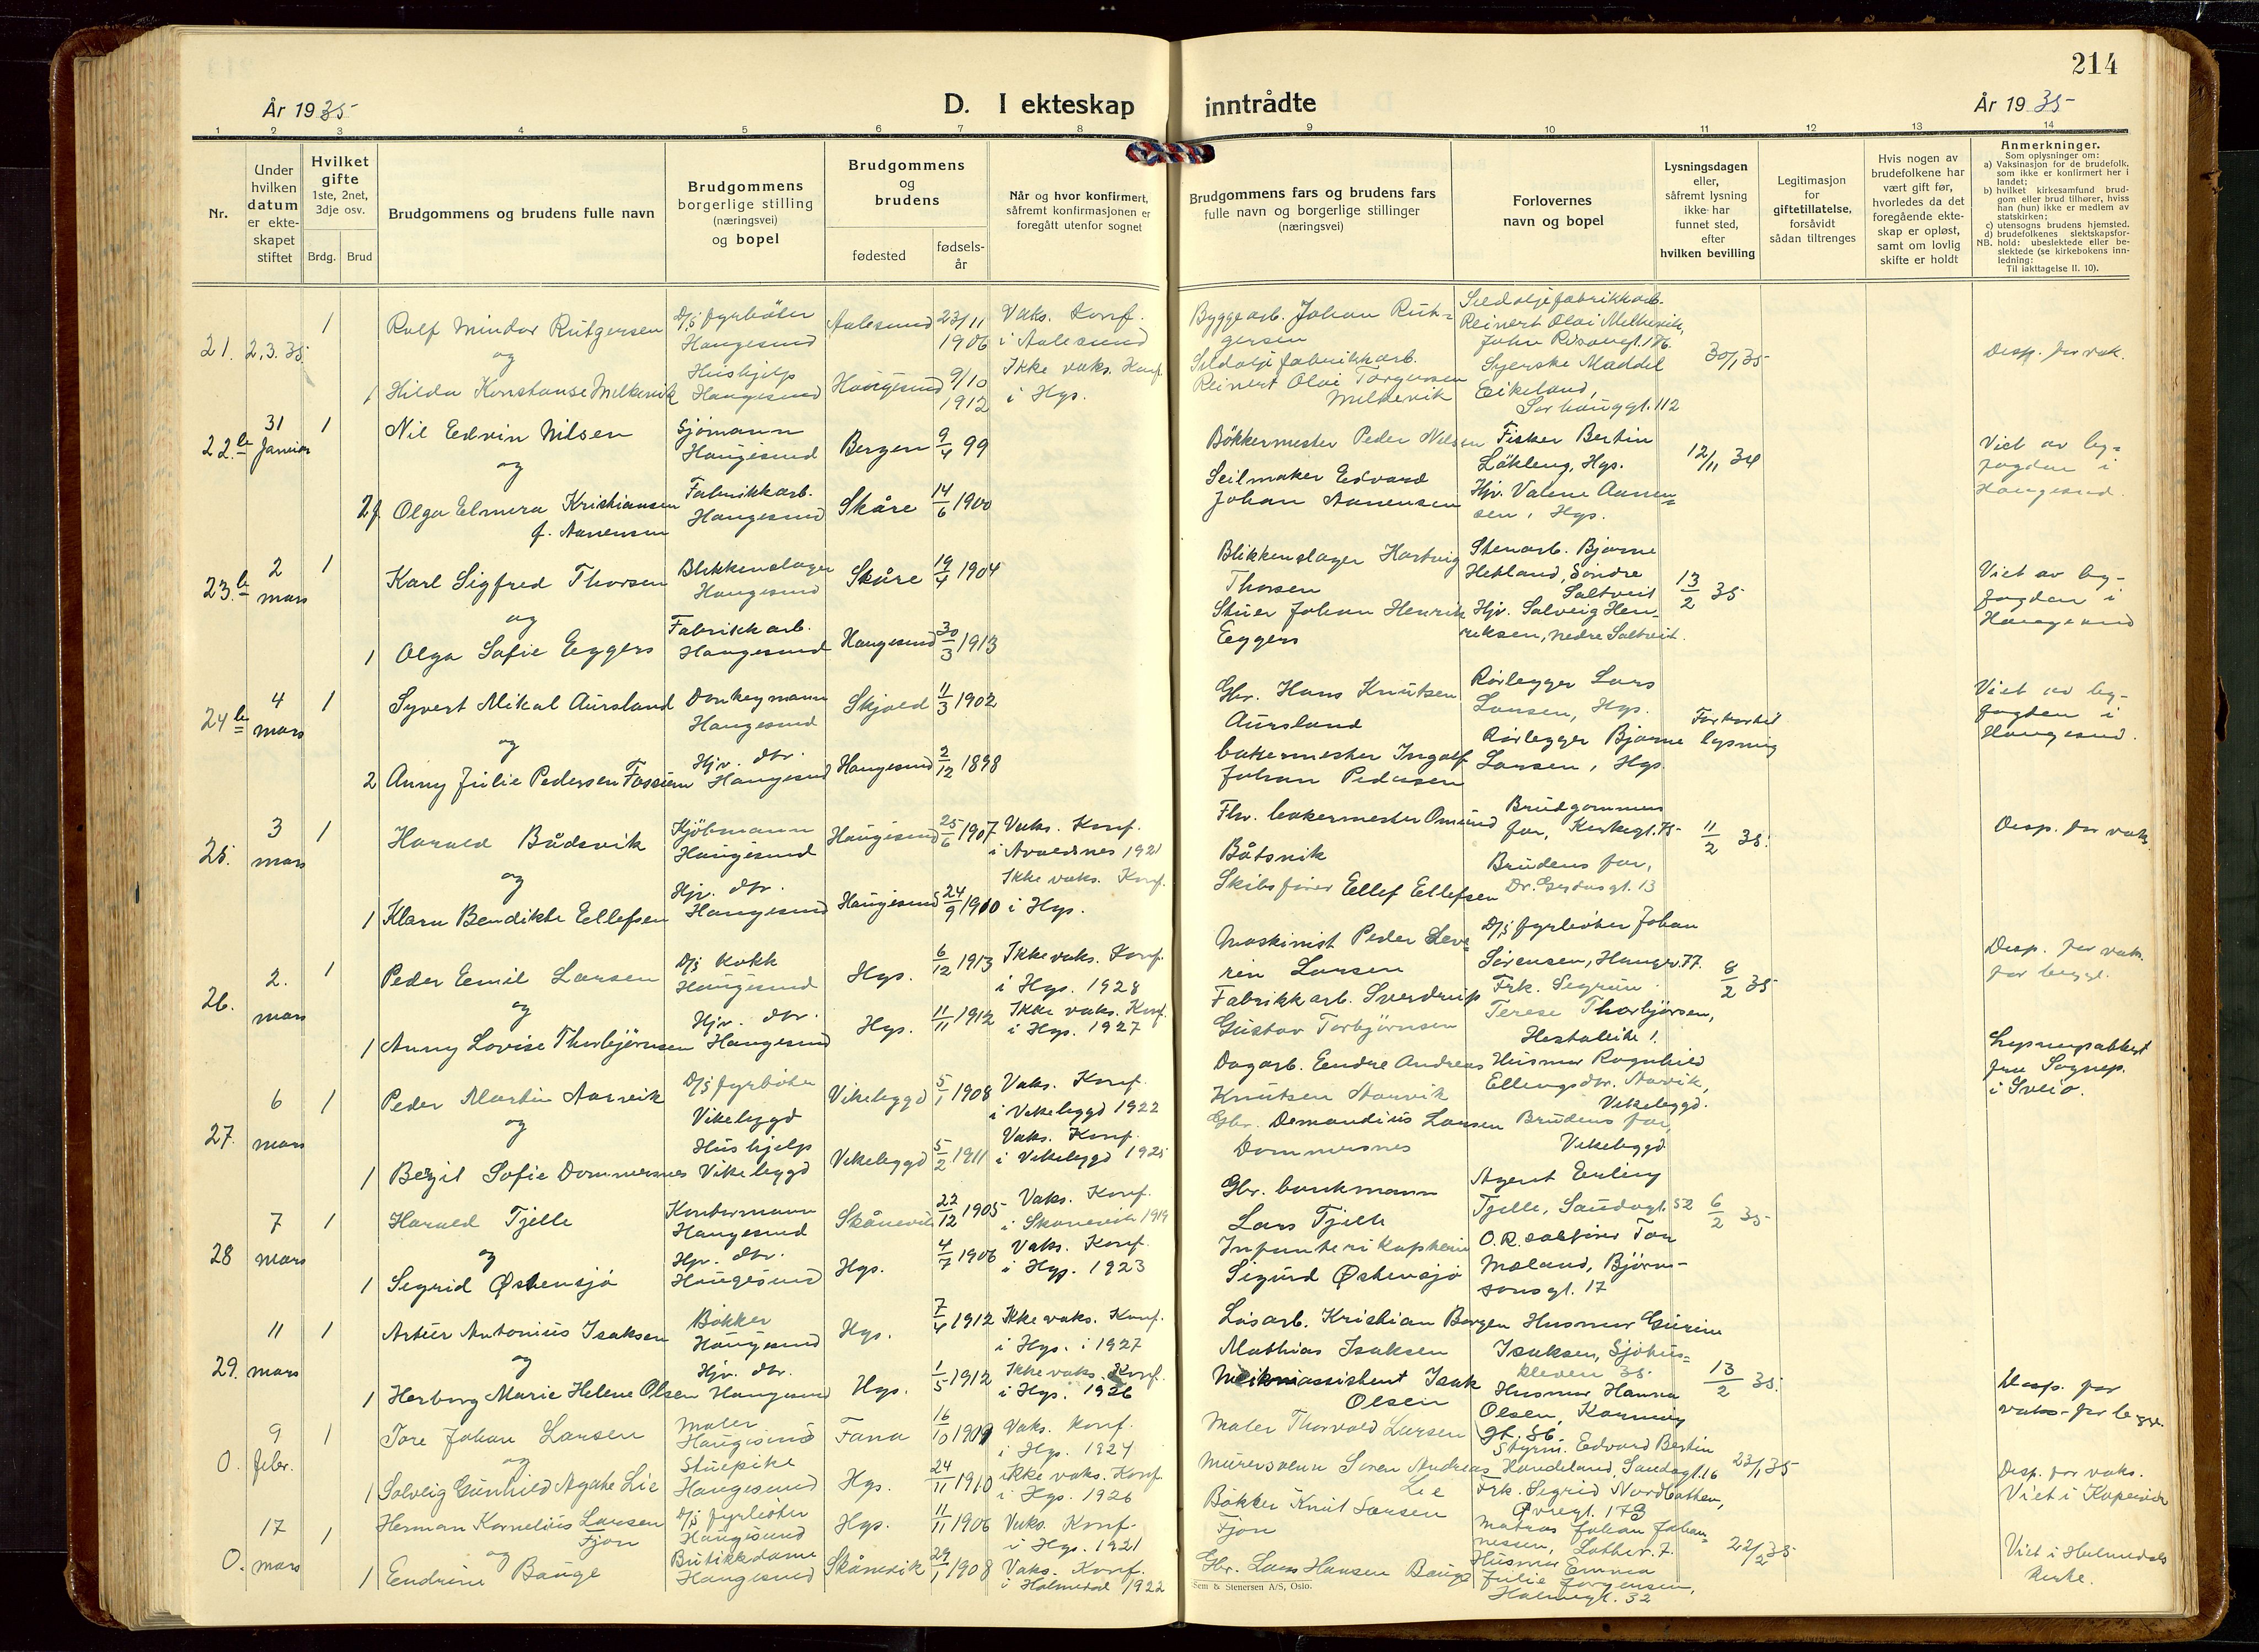 214
År 1935
D. I ekteskap
inntrådte
År 1935
1 2 3 4 5 6 7 8 9 10 11 12 13 14
Nr.
Under
hvilken
datum
er ekte-
skapet
stiftet
Hvilket
gifte
1ste, 2net,
3dje osv.
Brdg. Brud
Brudgommens og brudens fulle navn
Brudgommens
borgerlige stilling
(næringsvei)
og bopel
Brudgommens
og
brudens
fødested
fødsels-
år
Når og hvor konfirmert,
såfremt konfirmasjonen er
foregått utenfor sognet
Brudgommens fars og brudens fars
fulle navn og borgerlige stillinger
(næringsvei)
Forlovernes
navn og bopel
Lysningsdagen
eller,
såfremt lysning
ikke har
funnet sted,
efter
hvilken bevilling
Legitimasjon
for
giftetillatelse,
forsåvidt
sådan tiltrenges
Hvis nogen av
brudefolkene har
vært gift før,
hvorledes da det
foregående ekte-
skap er opløst,
samt om lovlig
skifte er holdt
Anmerkninger.
Som oplysninger om:
a) Vaksinasjon for de brudefolk,
som ikke er konfirmert her i
landet;
b) hvilket kirkesamfund brud-
gom eller brud tilhører, hviss
han (hun) ikke er medlem av
statskirken;
c) utensogns brudens hjemsted.
d) brudefolkenes slektskapsfor-
NB. hold: ubeslektede eller be-
slektede (se kirkebokens inn-
ledning:
Til iakttagelse II. 10).
21. 2.3.35. 1
Rolf Mindor Rutgersen
og
1 Hilda Konstanse Melkevik
D/s fyrbøter
Haugesund
Hushjelp
Haugesund
Aalesund 23/11 1906
Haugesund 9/10 1912
Vaks. Konf.
i Aalesund
Ikke vaks. Konf.
i Hgs.
Byggearb. Johan Rut-
gersen
Sildoljefabrikkarb.
Reinert Olai Torgersen
Melkevik
Sildoljefabrikkarb.
Reinert Olai Melkevik,
Syerske
Eikeland,
Sørhauggt. 112
30/1 35
Disp. for vak.
22 31 Januar 1
Nil Edvin Nilsen
og
2 Olga Elmera Kristiansen
f. Aanensen
Sjømann
Haugesund
Fabrikkarb.
Haugesund
Bergen 9/4 99
Skåre 14/6 1900
Bøkkermester Peder Nilsen
Seilmaker Edvard
Johan Aanensen
Fisker Bertin
Løkleng, Hgs.
Hjv. Valene Aanen-
sen, Hgs.
12/11 34
Viet av by-
fogden i
Haugesund.
23 2 mars 1
Karl Sigfred Thorsen
og
1 Olga Sofie Eggers
Blikkenslager
Haugesund
Fabrikkarb.
Haugesund
Skåre 19/4 1904
Haugesund 30/3 1913
Blikkenslager Hartvig
Thorsen
Stuer Johan Henrik
Eggers
Stenarb. Bjarne
Hetland, Søndre
Saltveit
Hjv. Solveig Hen-
riksen, nedre Saltveit.
13/2 35
Viet av by-
fogden i
Haugesund
24 4 mars 1
Syvert Mikal Aursland
og
2 Anny Julie Pedersen Fossum
Donkeymann
Haugesund
Hjv. dtr.
Haugesund
Skjold 11/3 1902
Haugesund 2/12 1898
Gbr. Hans Knutsen
Aursland
bakermester Ingolf
Johan Pedersen
Rørlegger Lars
Larsen, Hgs.
Rørlegger Bjarne
Larsen, Hgs.
Forkortet
lysning
Viet av by-
fogden i
Haugesund.
25. 3 mars 1
Harald Bådsvik
og
1 Klara Bendikte Ellefsen
Kjøbmann
Haugesund
Hjv. dtr.
Haugesund
Haugesund 25/6 1907
Haugesund 24/9 1910
Vaks. Konf.
i Avaldsnes 1921
Ikke vaks. Konf.
i Hgs.
Fhv. bakermester Omund
Båtsvik
Skibsfører Ellef Ellefsen
Brudgommens
far, Kirkegt. 75
Brudens far,
13
11/2 35.
Disp. for vaks.
26. 2. mars 1
Peder Emil Larsen
og
1 Anny Lovise Thorbjørnsen
D/s kokk
Haugesund
Hjv. dtr.
Haugesund
Hgs. 6/12 1913
Hgs. 11/11 1912
Ikke vaks. Konf.
i Hgs. 1928
Ikke vaks. Konf.
i Hgs. 1927
Maskinist Peder Seve-
rin Larsen
Fabrikkarb. Sverdrup
Gustav Torbjørnsen
D/s fyrbøter Johan
Sørensen, Haugev. 77.
Frk. Sigrun
Terese Thorbjørsen,
8/2 35
Disp. for vak.
for begge.
27. 6 mars 1
Peder Martin Aarvik
og
1 Bergit Sofie Dommersnes
D/s fyrbøter
Vikebygd
Hushjelp
Vikebygd
Vikebygd 5/1 1908
Vikebygd 5/2 1911
Vaks. Konf.
i Vikebygd 1922
Vaks. Konf.
i Vikebygd 1925
Dagarb. Endre Andreas
Knutsen Aarvik
Gbr. Demandius Larsen
Dommersnes
Husmor Ragnhild
Ellingsdtr. Aarvik,
Vikebygd.
Brudens far,
Vikebygd
Lysningsattest
fra Sognep.
i Sveio.
28 7 mars 1
Harald Tjelle
og
1 Sigrid Østensjø
Kontormann
Haugesund
Hjv. dtr.
Haugesund
Skånevik 22/12 1905
Hgs. 4/7 1906
Vaks. Konf.
i Skånevik 1919
Vaks. Konf.
i Hgs. 1923
Gbr. bankmann
Lars Tjelle
Infanterikaptein
Sigurd Østensjø
Agent Erling
Tjelle, Sandvgt. 52
O.R.sakfører Tor
Mæland, Bjørn-
sonsgt. 17
6/2 35
29. 11 mars 1
Artur Antonius Isaksen
og
1 Herborg Marie Helene Olsen
Bøkker
Haugesund
Hjv. dtr.
Haugesund
Hgs. 7/4 1912
Hgs. 1/5 1912
Ikke vaks. Konf.
i Hgs. i 1927
Ikke vaks. Konf.
i Hgs. 1926
Løsarb. Kristian Borgen
Mathias Isaksen
Isak
Olsen
Husmor Gurine
Isaksen, Sjøhus-
kleven 35.
Husmor Hanna
Olsen, Karmøy
gt. 86.
13/2 35.
Disp. for
vaks. for begge.
0. 9 febr. 1
Tore Johan Larsen
og
1 Solveig Gunhild Agathe Lie
Maler
Haugesund
Stuepike
Haugesund
Fana 16/10 1909
Hgs. 24/11 1910
Vaks. konf.
i Hgs. 1924
ikke vaks. Konf.
i Hgs. 1926
Maler Thorvald Larsen
Murersvenn Søren Andreas
Lie
Styrm. Edvard Bertin
Handeland, Sandvgt. 16
Frk. Sigrid Nordbotten,
Øvregt. 173
23/1 35
Disp. for vaks.
Viet i Kopervik
0. 17 mars 1
Herman Kornelius Larsen
Fjon
og
1 Endrine Bauge
D/s fyrbøter
Haugesund
Butikkdame
Haugesund
Hgs. 11/11 1906
Skånevik 29/1 1908
Vaks. Konf.
i Hgs. 1921
Vaks. Konf.
i Holmedal 1922
Bøkker Knut Larsen
Fjon
Gbr. Lars Hansen Bauge
Matros Johan Johan-
nessen, Lothev. 7.
Husmor Emma
Julie Jørgensen,
Haraldsgt. 32
22/2 35
Viet i Holmedal
kirke.
Sem & Stenersen A/S, Oslo.